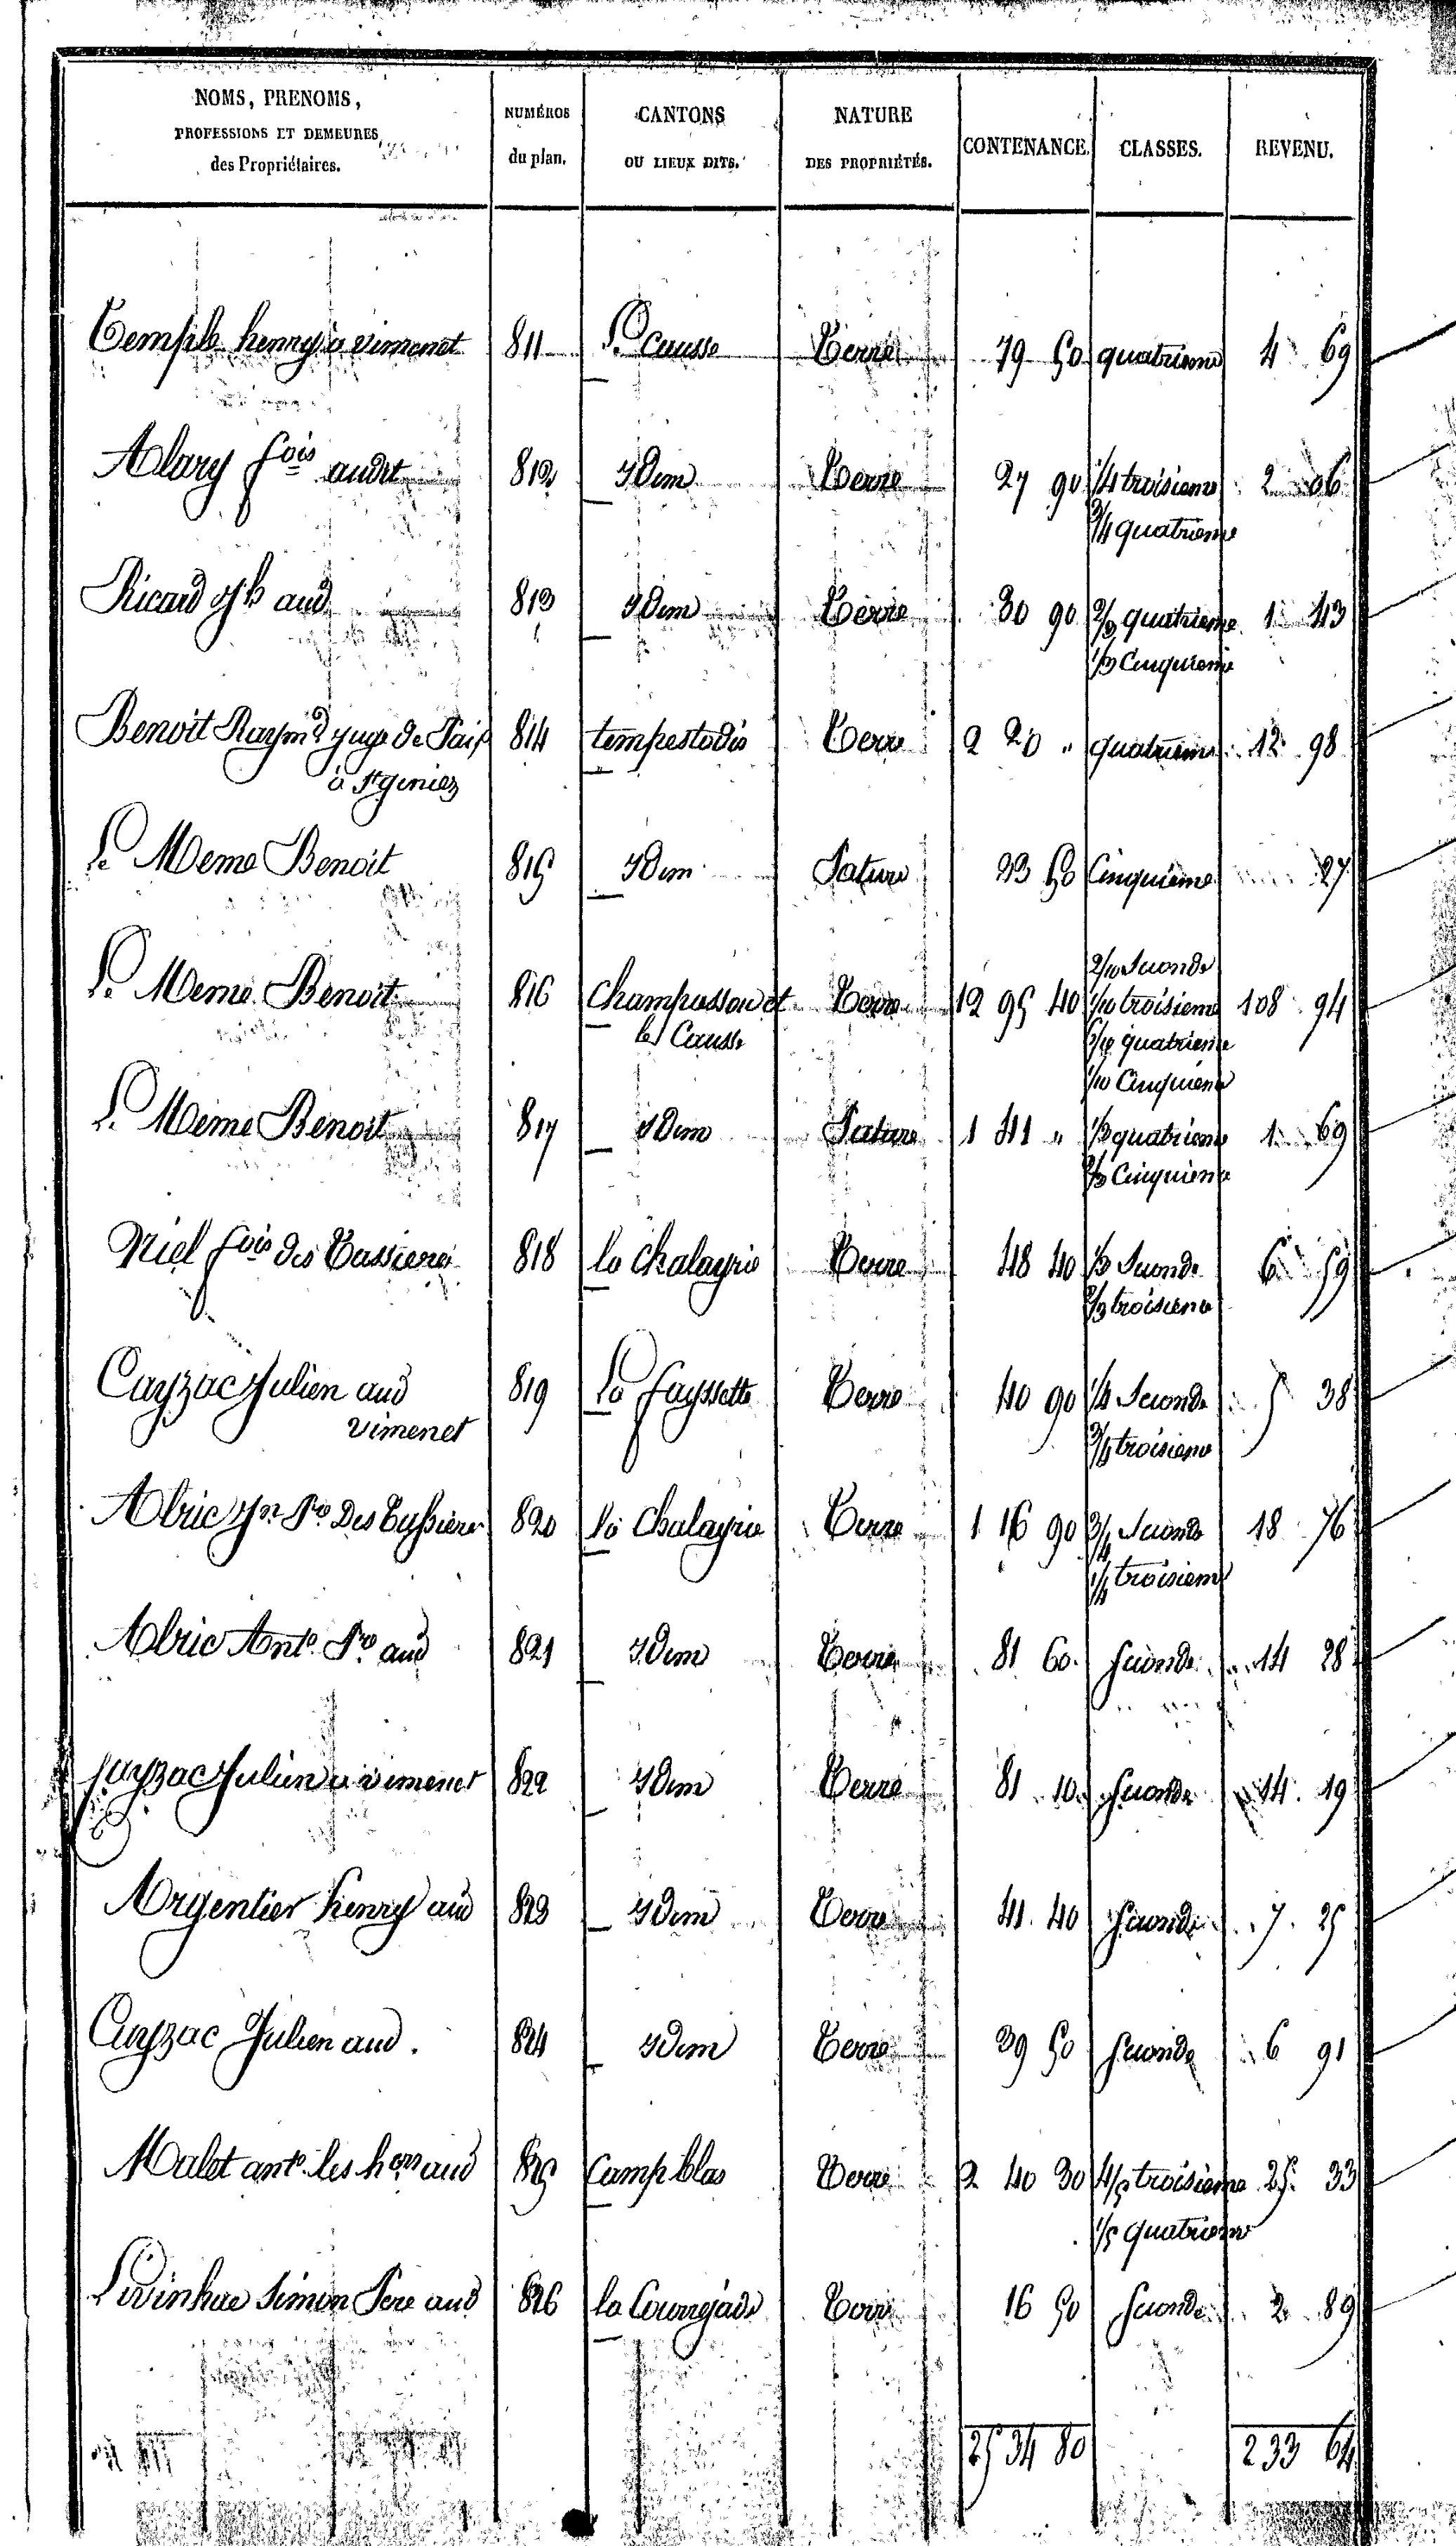 NOMS, PRENOMS,
PROFESSIONS ET DEMEURES
des Propriétaires.
NUMÉROS
du plan.
CANTONS
OU LIEUX DITS.
NATURE
DES PROPRIÉTÉS.
CONTENANCE.
CLASSES.
REVENU.
Temple henry a vimenet 811 Le Causse Terre 79 50 quatrieme 4 69
Alary fois audit 812 ydem Terre 27 90 1/4 troisieme 2 06
3/4 quatrieme
Ricard jh aud 813 ydem Terre 30 90 2/3 quatrieme 1 43
1/3 Cinquieme
Benoit Raymd juge de Paix 814 tempestodis Terre 2 20 " quatrieme 12 98
à St geniez
Le Meme Benoit 815 ydem Pature 23 50 Cinquieme 27
2/10 Seconde
Le Meme Benoit 816 Champusson et Terre 12 95 40 1/10 troisieme 108 94
les Causse 6/10 quatrieme
1/10 Cinquieme
Le Meme Benoit 817 ydem Pature 1 41 " 1/3 quatrieme 1 69
2/3 Cinquieme
Niel fois des Tassieres 818 la Chalayrie Terre 48 40 1/3 Seconde 6 59
2/3 troisieme
Cayzac Julien aud 819 La fayssette Terre 40 90 1/4 Seconde 5 38
vimenet 3/4 troisieme
Alric jn Pre Des Tussieres 820 la Chalayrie Terre 1 16 90 3/4 Seconde 18 76
1/4 troisieme
Alric Ante Pre aud 821 ydem Terre 81 60 Seconde 14 28
Cayzac Julien a vimenet 822 ydem Terre 81 10 Seconde 14 19
Argentier henry aud 823 ydem Terre 41 40 Seconde 7 25
Cayzac Julien aud. 824 ydem Terre 39 50 Seconde 6 91
Malet ante les hers aud 825 Camp blas Terre 2 40 30 4/5 troisieme 25 33
1/5 quatrieme
Livinhac Simon Pere aud 826 la Courrejade Terre 16 50 Seconde 2 89
25 34 80 233 64